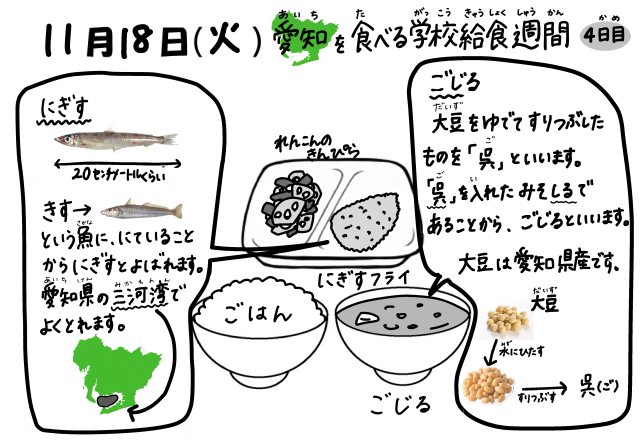 11月18日(火) 愛知を食べる学校給食週間 4日目
あいち た がっこう きゅうしょく しゅうかん かめ
にぎす
20センチメートルくらい
きす→
という魚に、にていること
さかな
からにぎすとよばれます。
愛知県の三河湾で
あいちけん みかわわん
よくとれます。
れんこんの
きんぴら
にぎすフライ
ごはん
ごじる
ごじる
だいず
大豆をゆでてすりつぶした
ものを「呉」といいます。
ご
「呉」を入れたみそしるで
ご い
あることから、ごじるといいます。
大豆は愛知県産です。
だいず
大豆
水にひたす
みず
すりつぶす
呉(ご)